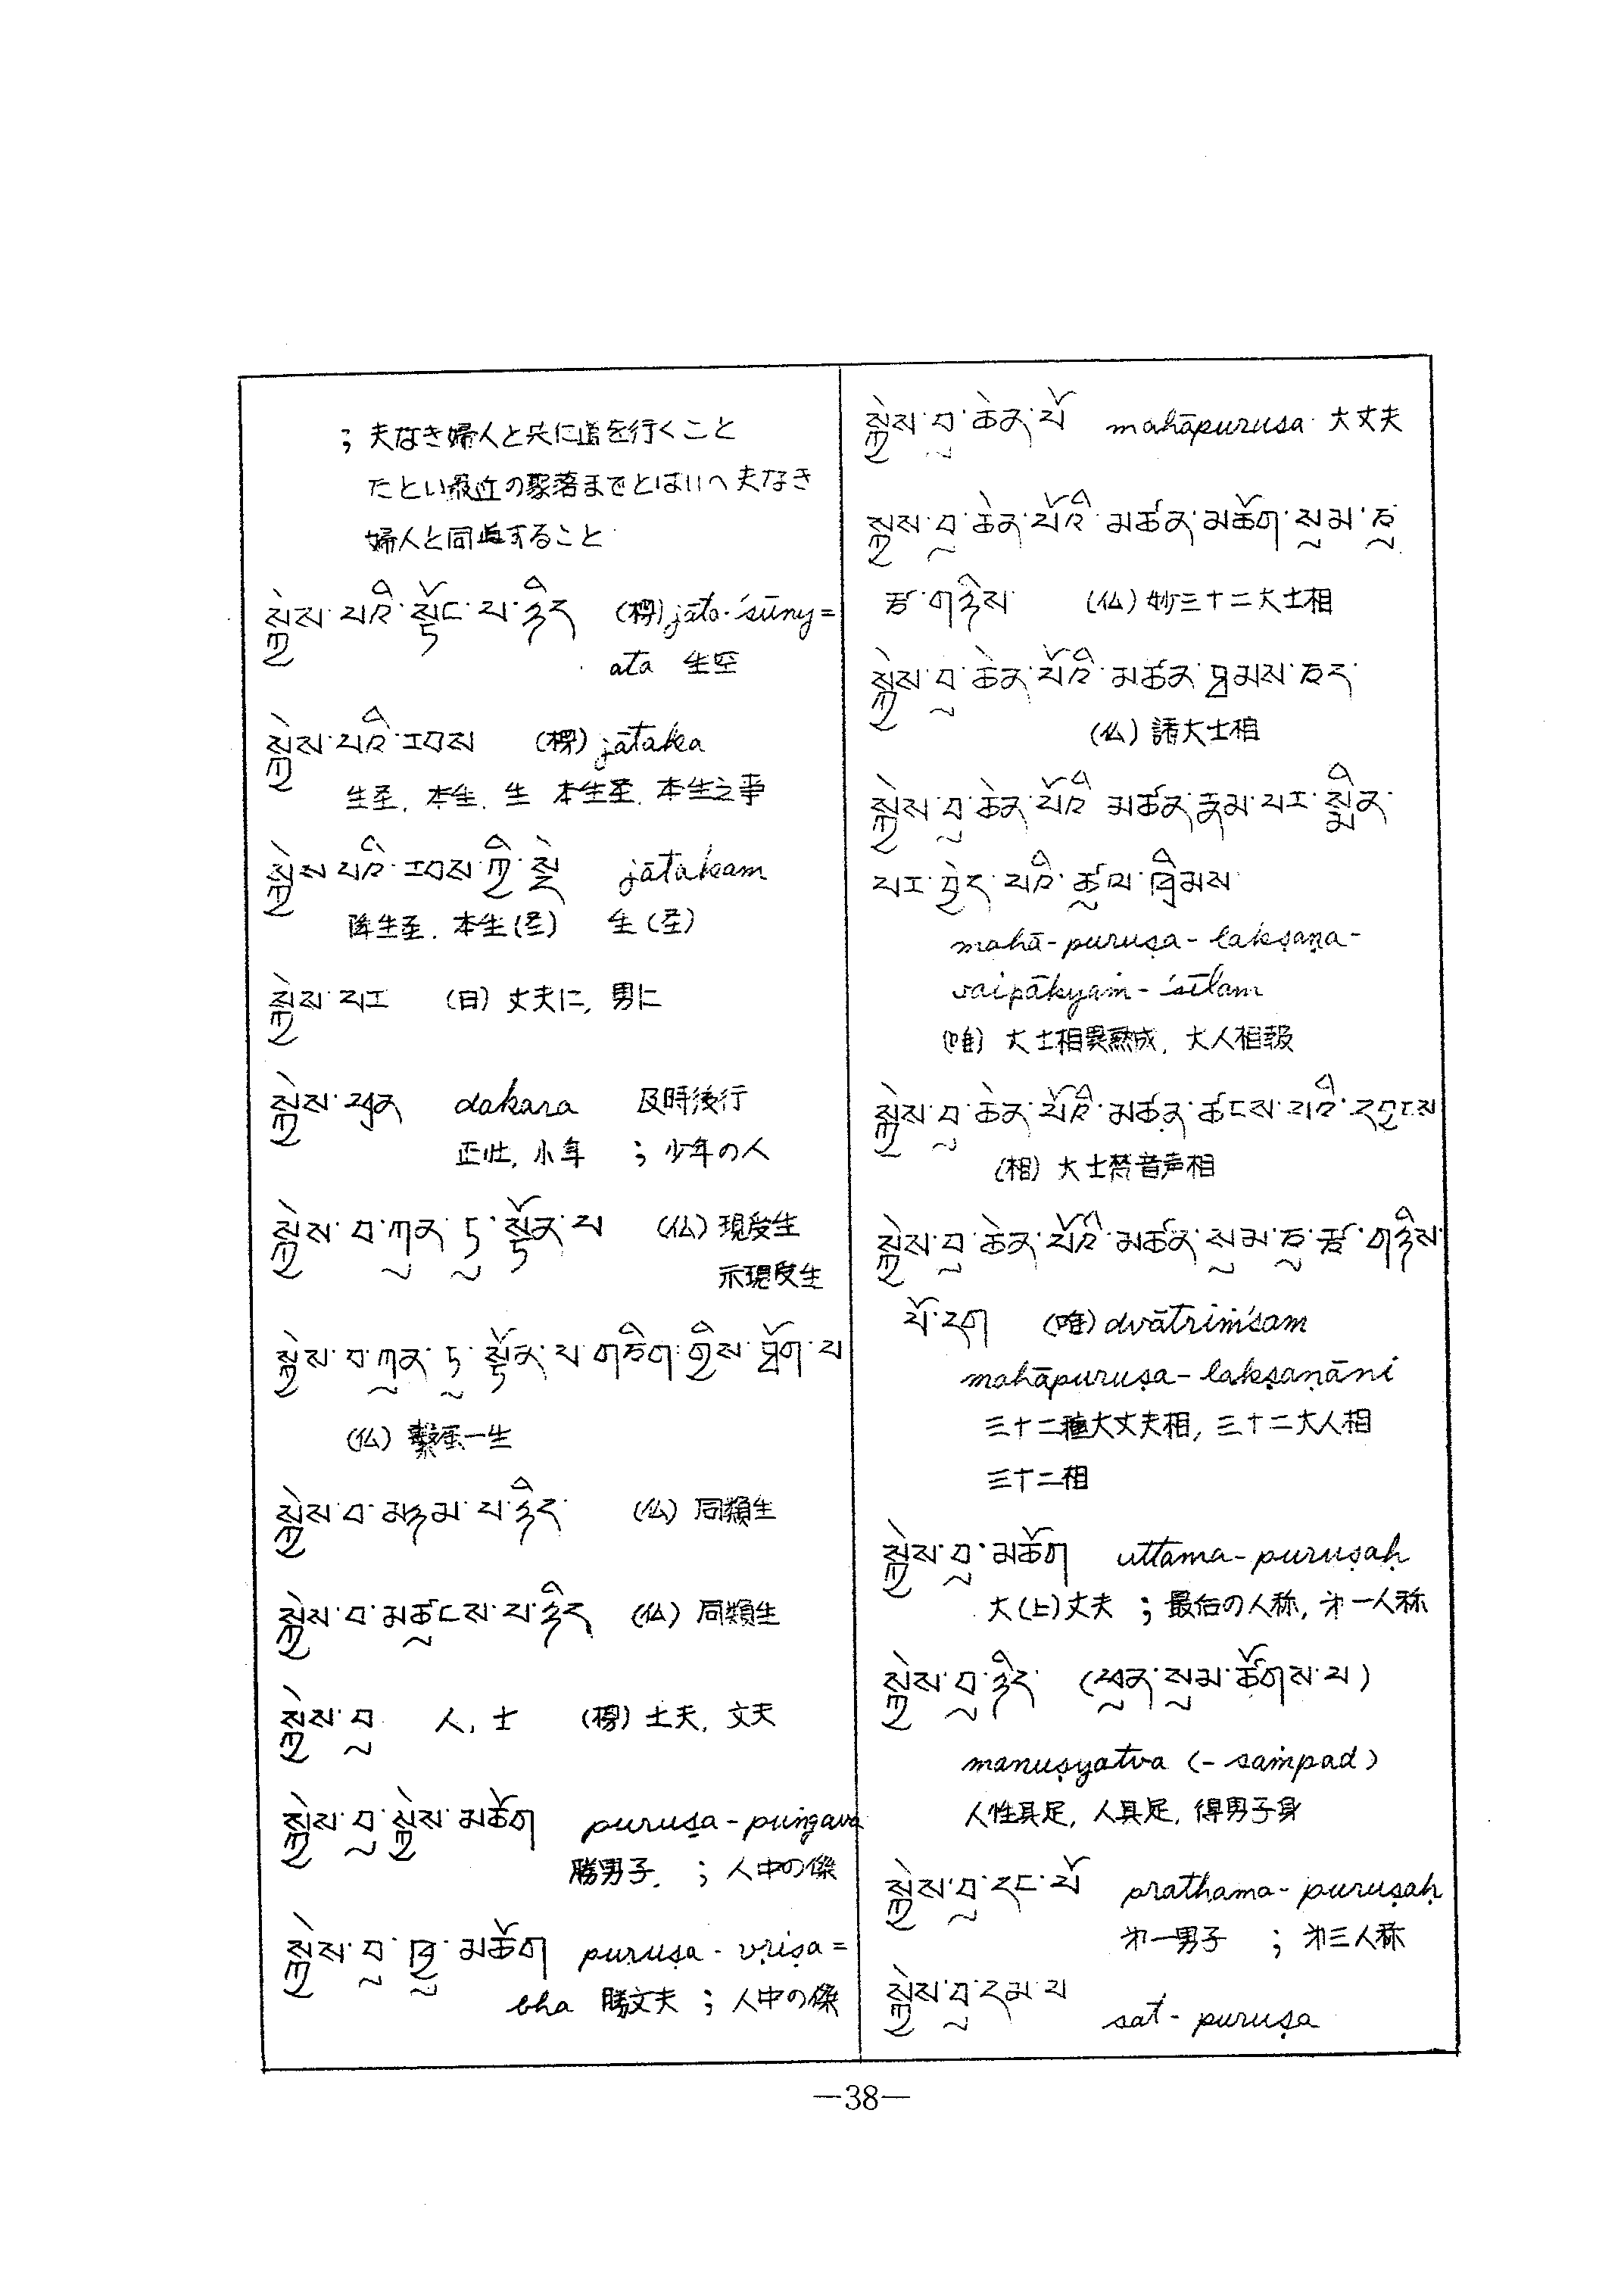 ；夫なき婦人と共に道を行くこと
たとい最近の聚落までとはいへ夫なき
婦人と同道すること
སྐྱེས་པའི་སྟོང་པ་ཉིད (楞) jāta-śūny=
ata 生空
སྐྱེས་པའི་རབས (楞) jātaka
生圣, 本生, 生 本生圣, 本生之事
སྐྱེས་པའི་རབས་ཀྱི་སྡེ jātakam
生圣, 本生(圣) 生(圣)
སྐྱེས་པར (日) 丈夫に, 男に
སྐྱེས་ཕྲན dakara 及時後行
正此, 小年 ；少年の人
སྐྱེས་བ་ཀུན་ཏུ་སྟོན་པ (仏) 現受生
示現受生
སྐྱེས་བ་ཀུན་ཏུ་སྟོན་པ་གཅིག་གྱིས་ཐོག་པ
(仏) 繫一生
སྐྱེས་བ་མཉམ་པ་ཉིད་ (仏) 同類生
སྐྱེས་བ་མཚུངས་པ་ཉིད (仏) 同類生
སྐྱེས་བུ 人, 士 (楞) 士夫, 文夫
སྐྱེས་བུ་སྐྱེས་མཆོག puruṣa-puṅgava
勝男子. ；人中の傑
སྐྱེས་བུ་ཁྱུ་མཆོག puruṣa-vṛiṣa=
bha 勝文夫；人中の傑
སྐྱེས་བུ་ཆེན་པོ mahāpurusa 大丈夫
སྐྱེས་བུ་ཆེན་པོའི་མཚན་མཆོག་སུམ་ཅུ་
རྩ་གཉིས (仏) 妙三十二大士相
སྐྱེས་བུ་ཆེན་པོའི་མཚན་ཐམས་ཅད་
(仏) 諸大士相
སྐྱེས་བུ་ཆེན་པོའི་མཚན་རྣམ་པར་སྨིན་
པར་བྱེད་པའི་ཚུལ་ཁྲིམས
mahā-puruṣa-lakṣaṇa-
vaipākyaṁ-śīlam
(唯) 大士相異熟戒, 大人相報
སྐྱེས་བུ་ཆེན་པོའི་མཚན་ཚངས་པའི་དབྱངས
(相) 大士梵音声相
སྐྱེས་བུ་ཆེན་པོའི་མཚན་སུམ་ཅུ་རྩ་གཉིས་
པོ་དག (唯) dvātriṁśam
mahāpuruṣa-lakṣaṇāni
三十二種大丈夫相, 三十二大人相
三十二相
སྐྱེས་བུ་མཆོག uttama-puruṣaḥ
大(上)丈夫；最后の人称, 才一人称
སྐྱེས་བུ་ཉིད་ (ཕུན་སུམ་ཚོགས་པ)
manuṣyatva (-saṁpad)
人性具足, 人具足, 得男子身
སྐྱེས་བུ་དང་པོ prathama-puruṣaḥ
才一男子 ；才三人称
སྐྱེས་བུ་དམ་པ
sat-puruṣa
—38—